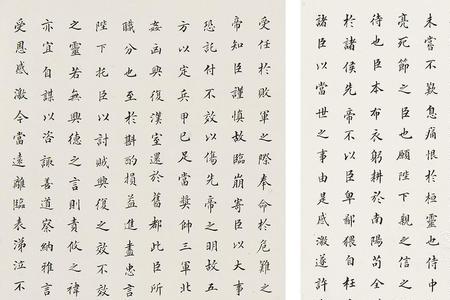 未嘗不歎息痛恨於桓靈也侍中
亮死節之臣也願陛下親之信之
待也臣本布衣躬耕於南陽苟全
於諸侯先帝不以臣卑鄙猥自枉
諸臣以當世之事由是感激遂許
受任於敗軍之際奉命於危難之
帝知臣謹慎故臨崩寄臣以大事
恐託付不效以傷先帝之明故五
方以定兵甲已足當獎帥三軍北
姦凶興復漢室還於舊都此臣所
職分也至於斟酌損益進盡忠言
陛下託臣以討賊興復之效不效
之靈若無興德之言則責攸之禕
亦宜自謀以咨諏善道察納雅言
受恩感激今當遠離臨表涕泣不